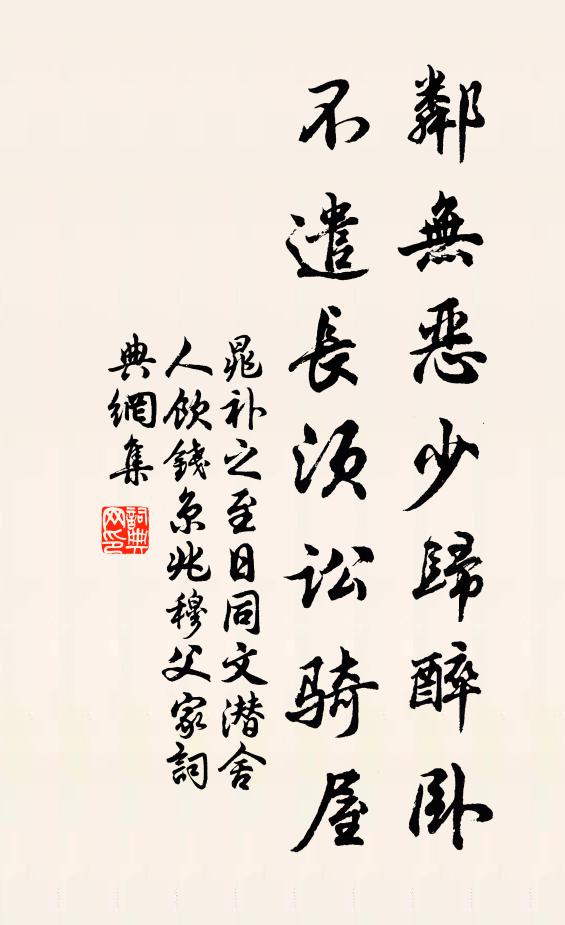 鄰無惡少歸醉臥
不遣長須訟騎屋
晁补之至日同文潜舍
人飲錢京兆穆父家詞
典網集
詞典
网印